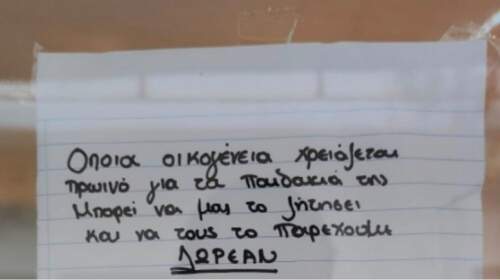 Οποια οικογένεια χρειάζεται
πρωινό για τα παιδακιά της
Μπορεί να μας το ζητήσει
και να τους το παρέχουμε
ΔΩΡΕΑΝ